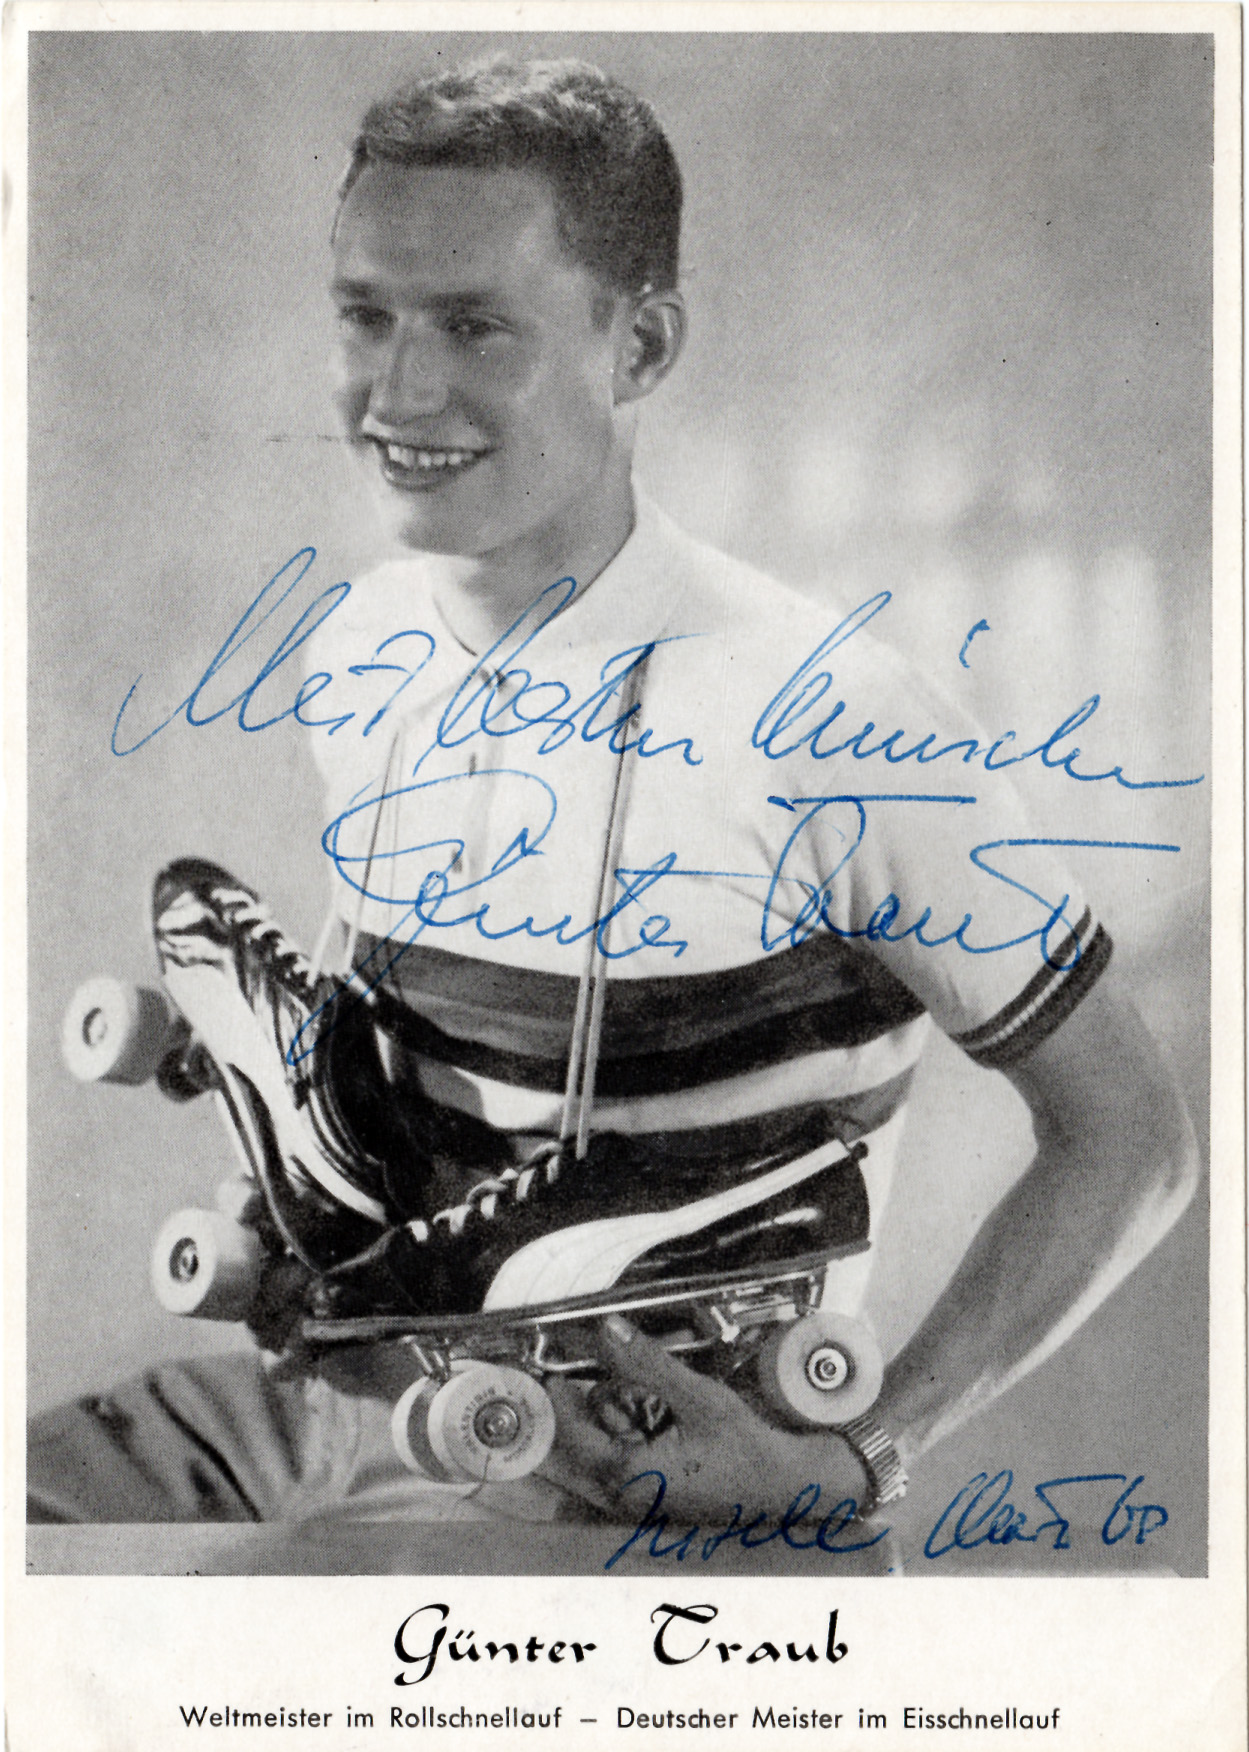 Mit besten Wünschen
Günter Traub
Inzell
Günter Traub
Weltmeister im Rollschnellauf – Deutscher Meister im Eisschnellauf